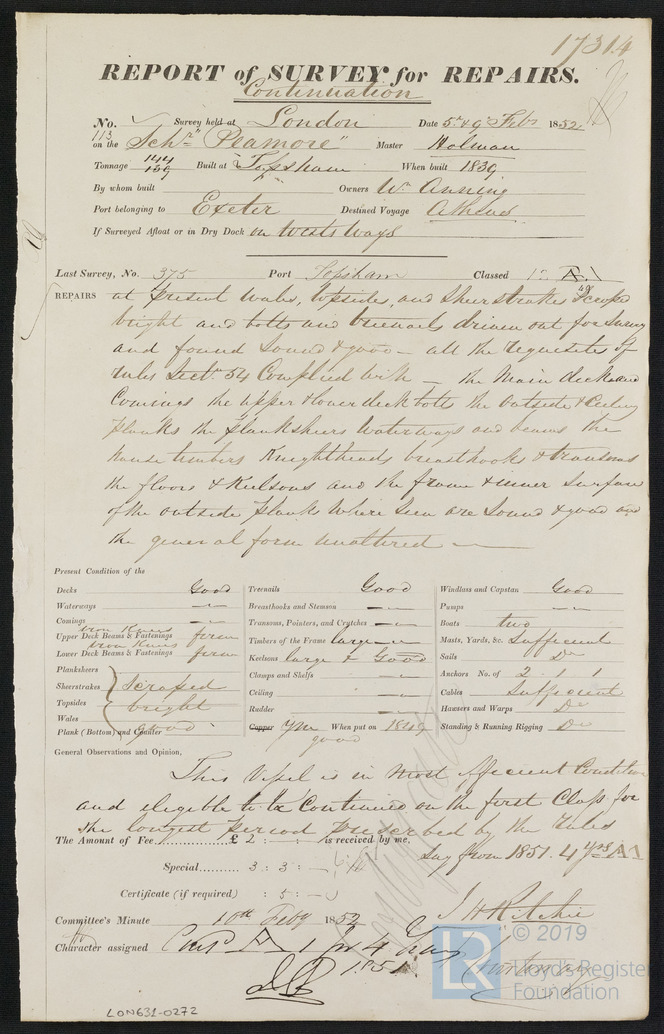 17314
REPORT of SURVEY for REPAIRS.
Continuation
No. Survey held at London Date 5th & 9 Feb 1852
113
on the Schr "Peamore" Master Holman
Tonnage 144 Built at Topsham When built 1839
By whom built Owners Wm Anning
Port belonging to Exeter Destined Voyage Athens
If Surveyed Afloat or in Dry Dock on Wests Ways
Last Survey, No. 375 Port Topsham Classed 12 A.1
REPAIRS at present Wales, topsides, and Sheerstrakes Scraped
bright and bolts and treenails driven out for survey
and found Sound & good — all the requisites of
rules Sectn 54 Complied with — the Main deck and
Comings the upper & lower deck bolts the outside & Ceiling
planks the planksheers Waterways and beams the
hawse timbers Knightheads breasthooks & transoms
the floors & Keelsons and the frame & inner surface
of the outside planks where seen are Sound & good and
the general form unaltered
Present Condition of the
Decks Good
Waterways —
Comings —
iron Knees
Upper Deck Beams & Fastenings firm
iron Knees
Lower Deck Beams & Fastenings firm
Planksheers
Sheerstrakes scraped
Topsides bright
Wales
Plank (Bottom) and Counter good
Treenails Good
Breasthooks and Stemson —
Transoms, Pointers, and Crutches —
Timbers of the Frame large —
Keelsons large & Good
Clamps and Shelfs —
Ceiling —
Rudder —
Copper YM When put on 1849
good
Windlass and Capstan Good
Pumps —
Boats two
Masts, Yards, &c. Sufficient
Sails Do
Anchors No. of 2 . 1 . 1
Cables Sufficient
Hawsers and Warps Do
Standing & Running Rigging Do
General Observations and Opinion,
This Vessel is in most efficient Condition
and eligible to be Continued on the first Class for
the longest period prescribed by the Rules
The Amount of Fee £ 2 : - : is received by me,
say from 1851. 4 yrs A1
Special 3 : 3 : -
Certificate (if required) : 5 : -
J H Ritchie
Committee's Minute 10th Feby 1852
Character assigned Cont A 1 for 4 Years
1851
LR © 2019
Lloyd's Register
Foundation
LON631-0272